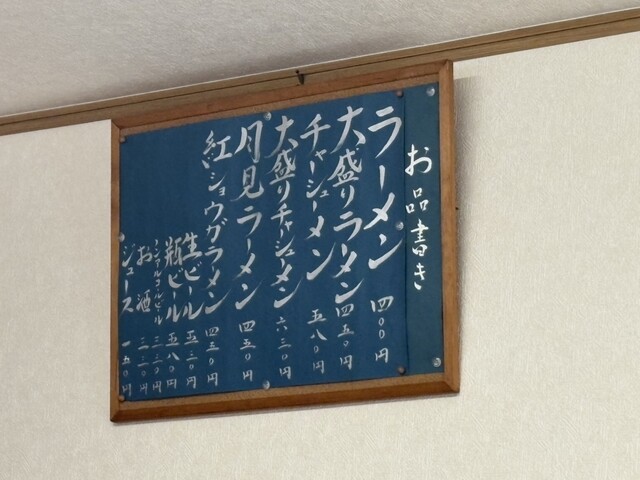 お品書き
ラーメン 四〇〇円
大盛りラーメン 四五〇円
チャーシューメン 五八〇円
大盛りチャーシューメン 六三〇円
月見ラーメン 四五〇円
紅ショウガラメン 四三〇円
生ビール 五三〇円
瓶ビール 五八〇円
ノンアルコールビール 三三〇円
お酒 三二〇円
ジュース 一五〇円